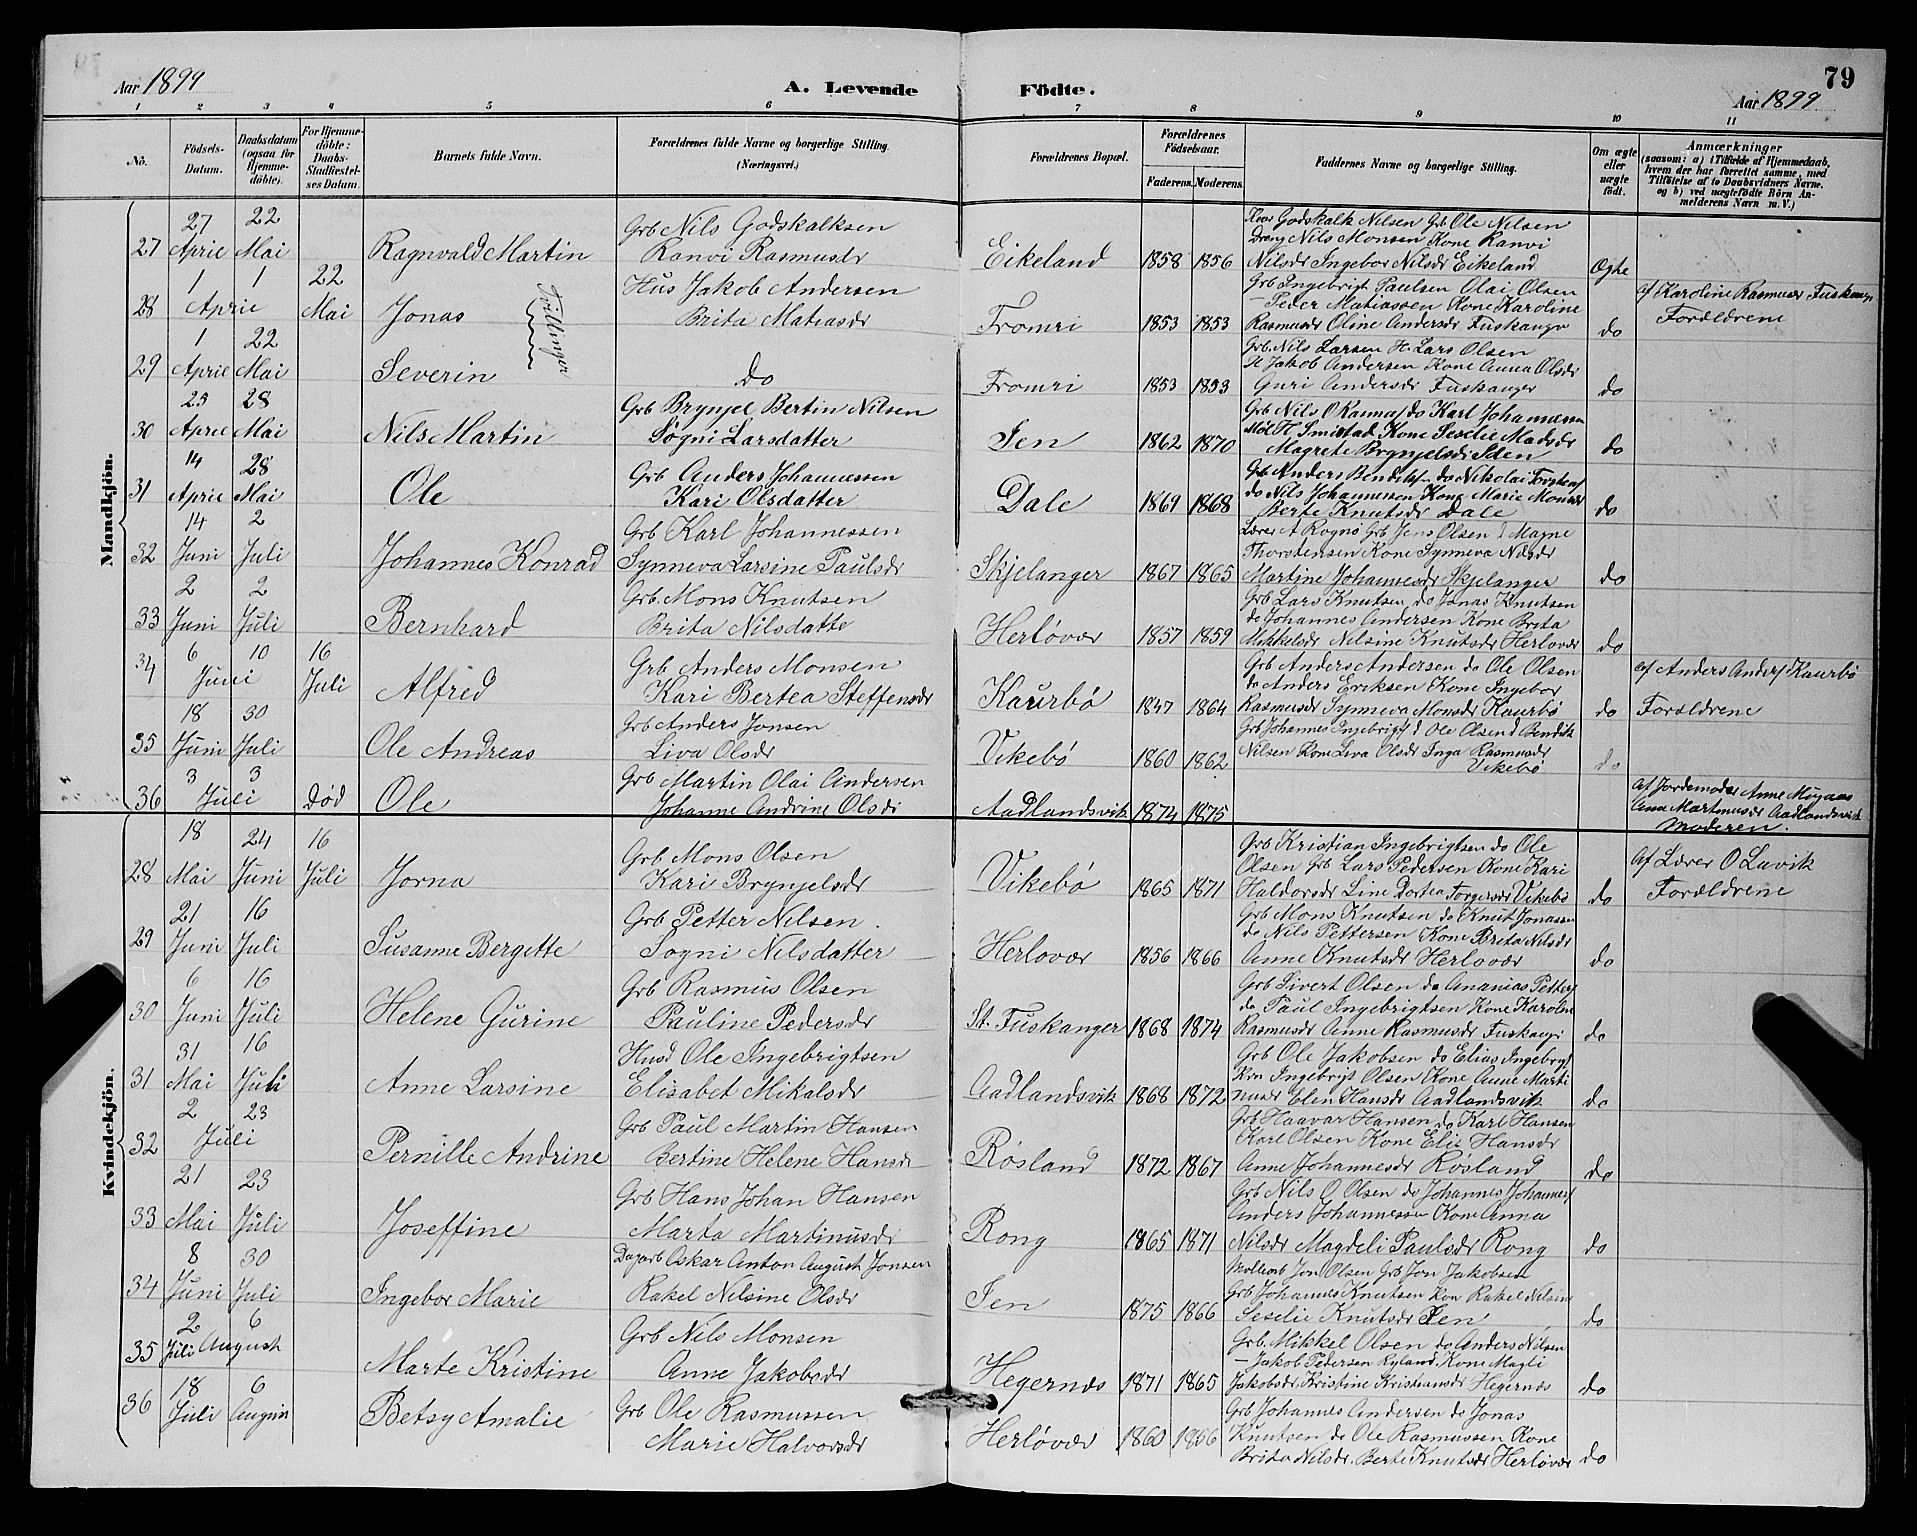 79
Aar 1899 A. Levende Födte. Aar 1899
1 2 3 4 5 6 7 8 9 10 11
No. Födsels-Datum. Daabsdatum (ogsaa for Hjemmedöbte). For Hjemmedöbte: Daabs-Stadfæstelses Datum. Barnets fulde Navn. Forældrenes fulde Navne og borgerlige Stilling. (Næringsvei.) Forældrenes Bopæl. Forældrenes Födselsaar. Faderens. Moderens. Faddernes Navne og borgerlige Stilling. Om ægte eller uægte födt. Anmærkninger (saasom: a) i Tilfælde af Hjemmedaab, hvem der har forrettet samme, med Tilföielse af to Daabsvidners Navne, og b) ved uægtefödte Börn Anmelderens Navn m. V.)
Mandkjön.
27 27 April 22 Mai Ragnvald Martin Grb Nils Godskalksen Ranvi Rasmusdr Eikeland 1858 1856 Godskalk Nilsen Grb Ole Nilsen
Dreng Nils Monsen Kone Ranvi
Nilsdr Ingebor Nilsdr Eikeland Ægte
28 1 April 1 22 Mai Jonas Tvillinger Hus Jakob Andersen Brita Matiasdr Fromri 1853 1853 Grb Ingebrigt Paulsen Olai Olsen
– Peder Matiassen Kone Karoline
Rasmusdr Oline Andersdr Fuskanger do af Karoline Rasmusdr Fuskanger
Forældrene
29 1 April 22 Mai Severin do Fromri 1853 1853 Grb. Nils Larsen H. Lars Olsen
H Jakob Andersen Kone Anna Olsdr
Guri Andersdr Fuskanger do
30 25 April 28 Mai Nils Martin Grb Brynjel Bertin Nilsen Søgni Larsdatter Sen 1862 1870 Grb Nils O Rasmus do Karl Johannesen
Smistad Kone Seselie Madsdr
Magrete Brynjelsdr Sen do
31 14 April 28 Mai Ole Grb Anders Johannessen Kari Olsdatter Dale 1869 1868 Grb Anders Bendiks do Nikolai
do Nils Johannessen Kone Marie Monsdr
Berte Knutsdr Dale do
32 14 Juni 2 Juli Johannes Konrad Grb Karl Johannessen Synneva Larsine Paulsdr Skjelanger 1867 1865 Lærer A Rognø Grb Jens Olsen d Magne
Thorstensen Kone Synneva Nilsdr
Martine Johannesdr Skjelanger do
33 2 Juni 2 Juli Bernhard Grb. Mons Knutsen Brita Nilsdatte Herløvær 1857 1859 Grb Lars Knutsen do Jonas Knutsen
do Johannes Andersen Kone Brita
Mikkelsdr Nelsine Knutsdr Herlovær do
34 6 Juni 10 16 Juli Alfred Grb Anders Monsen Kari Bertea Steffensdr Kaurbø 1847 1864 Grb Anders Andersen do Ole Olsen
do Anders Eriksen Kone Ingebor
Rasmusdr Synneva Monsdr Kaurbø do af Anders Anders Kaurbø
Forældrene
35 18 Juni 30 Juli Ole Andreas Grb Anders Jonsen Liva Olsdr Vikebø 1860 1862 Grb Johannes Ingebrigt d Ole Olsen d Bendik
Nilsen Kone Liva Olsdr Inga Rasmusdr
Vikebø do
36 3 Juli 3 død Ole Grb Martin Olai Andersen Johanne Andrine Olsdr Aadlandsvik 1874 1875 af Jordemoder Anne
Ana Martinusdr Aadlandsvik
Moderen.
Kvindekjön.
28 18 Mai 24 Juni 16 Juli Jorna Grb Mons Olsen Kari Brynjelsdr Vikebø 1865 1871 Grb Kristian Ingebrigtsen do Ole
Olsen Grb Lars Pedersen Kone Kari
Haldorsdr Line Dortea Torgersdr Vikebø do Af Lærer O Luvik
Forældrene
29 21 Juni 16 Juli Susanne Bergette Grb Petter Nilsen Sogni Nilsdatter Herlovær 1856 1866 Grb Mons Knutsen do Knut Jonassen
do Nils Pettersen Kone Brita Nilsdr
Anne Knutsdr Herlovær do
30 6 Juni 16 Juli Helene Gurine Grb Rasmus Olsen Pauline Pedersdr St. Fuskanger 1868 1874 Grb Sivert Olsen do Ananias Petters
do Paul Ingebrigtsen Kone Karoline
Rasmusdr Anne Rasmusdr Fuskangr do
31 31 Mai 16 Juli Anne Larsine Husd Ole Ingebrigtsen Elisabet Mikalsdr Aadlandsvik 1868 1872 Grb Ole Jakobsen do Elias Ingebrigt
Ingebrigt Olsen Kone Anne Marti
nusdr Elen Hansdr Aadlandsvik do
32 2 Juli 23 Pernille Andrine Grb Paul Martin Hansen Bertine Helene Hansdr Røsland 1872 1867 Grb Haavar Hansen do Karl Hansen
Karl Olsen Kone Elie Hansdr
Anne Johannesdr Røsland do
33 21 Mai 23 Juli Joseffine Grb Hans Johan Hansen Marta Martinusdr Rong 1865 1871 Grb Nils O Olsen do Johannes Johannes
Anders Johannessen Kone Anna
Nilsdr Magdeli Paulsdr Rong do
34 8 Juni 30 Juli Ingebor Marie Dagarb Oskar Anton August Jonsen Rakel Nilsine Olsdr Sen 1875 1866 Jon Olsen Grb Jon Jakobsen
Grb Johannes Knutsen Kon Rakel Nilsine
Seselie Knutsdr Sen do
35 2 Juli 6 August Marte Kristine Grb Nils Monsen Anne Jakobsdr Hegernæs 1871 1865 Grb. Mikkel Olsen do Anders Nilsen
– Jakob Pedersen Ryland. Kone Magli
Jakobsdr. Kristine Kristiansdr Hegernæs do
36 18 Juli 6 August Betsy Amalie Grb Ole Rasmussen Marie Halvorsdr Herløvær 1860 1866 Grb Johannes Andersen do Jonas
Knutsen do Ole Rasmussen Kone
Brita Nilsdr. Berte Knutsdr Herløvær do